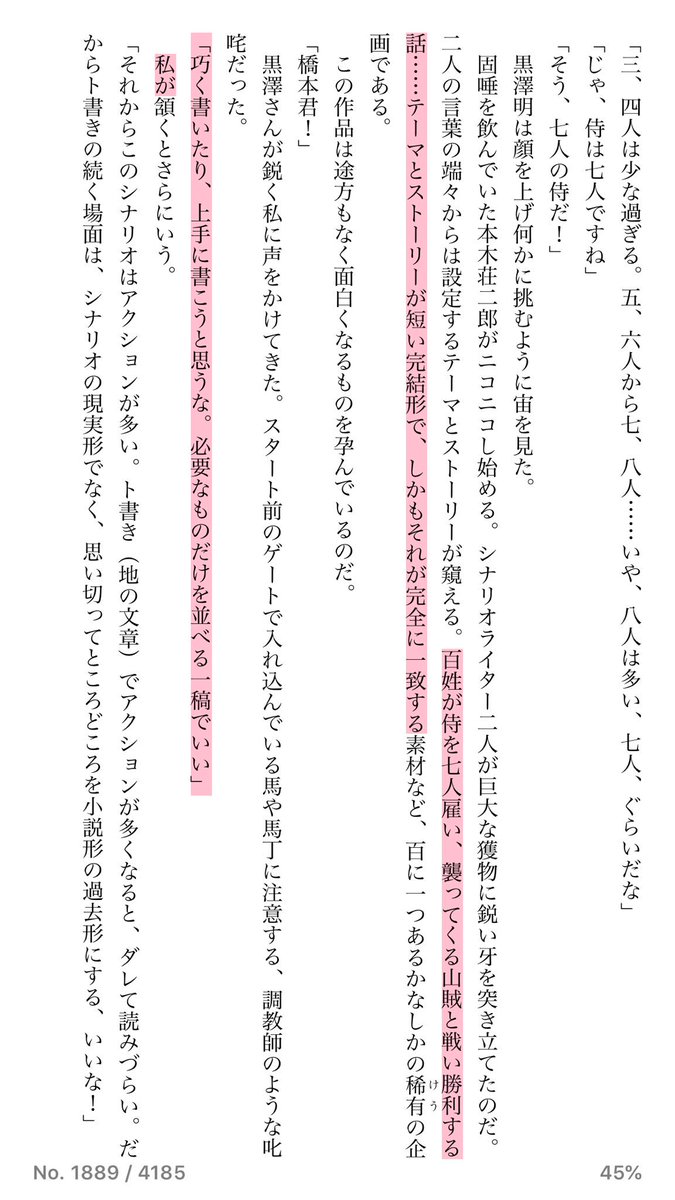 「三、四人は少な過ぎる。五、六人から七、八人……いや、八人は多い、七人、ぐらいだな」
「じゃ、侍は七人ですね」
「そう、七人の侍だ！」
黒澤明は顔を上げ何かに挑むように宙を見た。
固唾を飲んでいた本木荘二郎がニコニコし始める。シナリオライター二人が巨大な獲物に鋭い牙を突き立てたのだ。
二人の言葉の端々からは設定するテーマとストーリーが窺える。百姓が侍を七人雇い、襲ってくる山賊と戦い勝利する
話……テーマとストーリーが短い完結形で、しかもそれが完全に一致する素材など、百に一つあるかなしかの稀有の企
けう
画である。
この作品は途方もなく面白くなるものを孕んでいるのだ。
「橋本君！」
黒澤さんが鋭く私に声をかけてきた。スタート前のゲートで入れ込んでいる馬や馬丁に注意する、調教師のような叱
咤だった。
「巧く書いたり、上手に書こうと思うな。必要なものだけを並べる一稿でいい」
私が頷くとさらにいう。
「それからこのシナリオはアクションが多い。ト書き（地の文章）でアクションが多くなると、ダレて読みづらい。だ
からト書きの続く場面は、シナリオの現実形でなく、思い切ってところどころを小説形の過去形にする、いいな！」
No. 1889 / 4185
45%